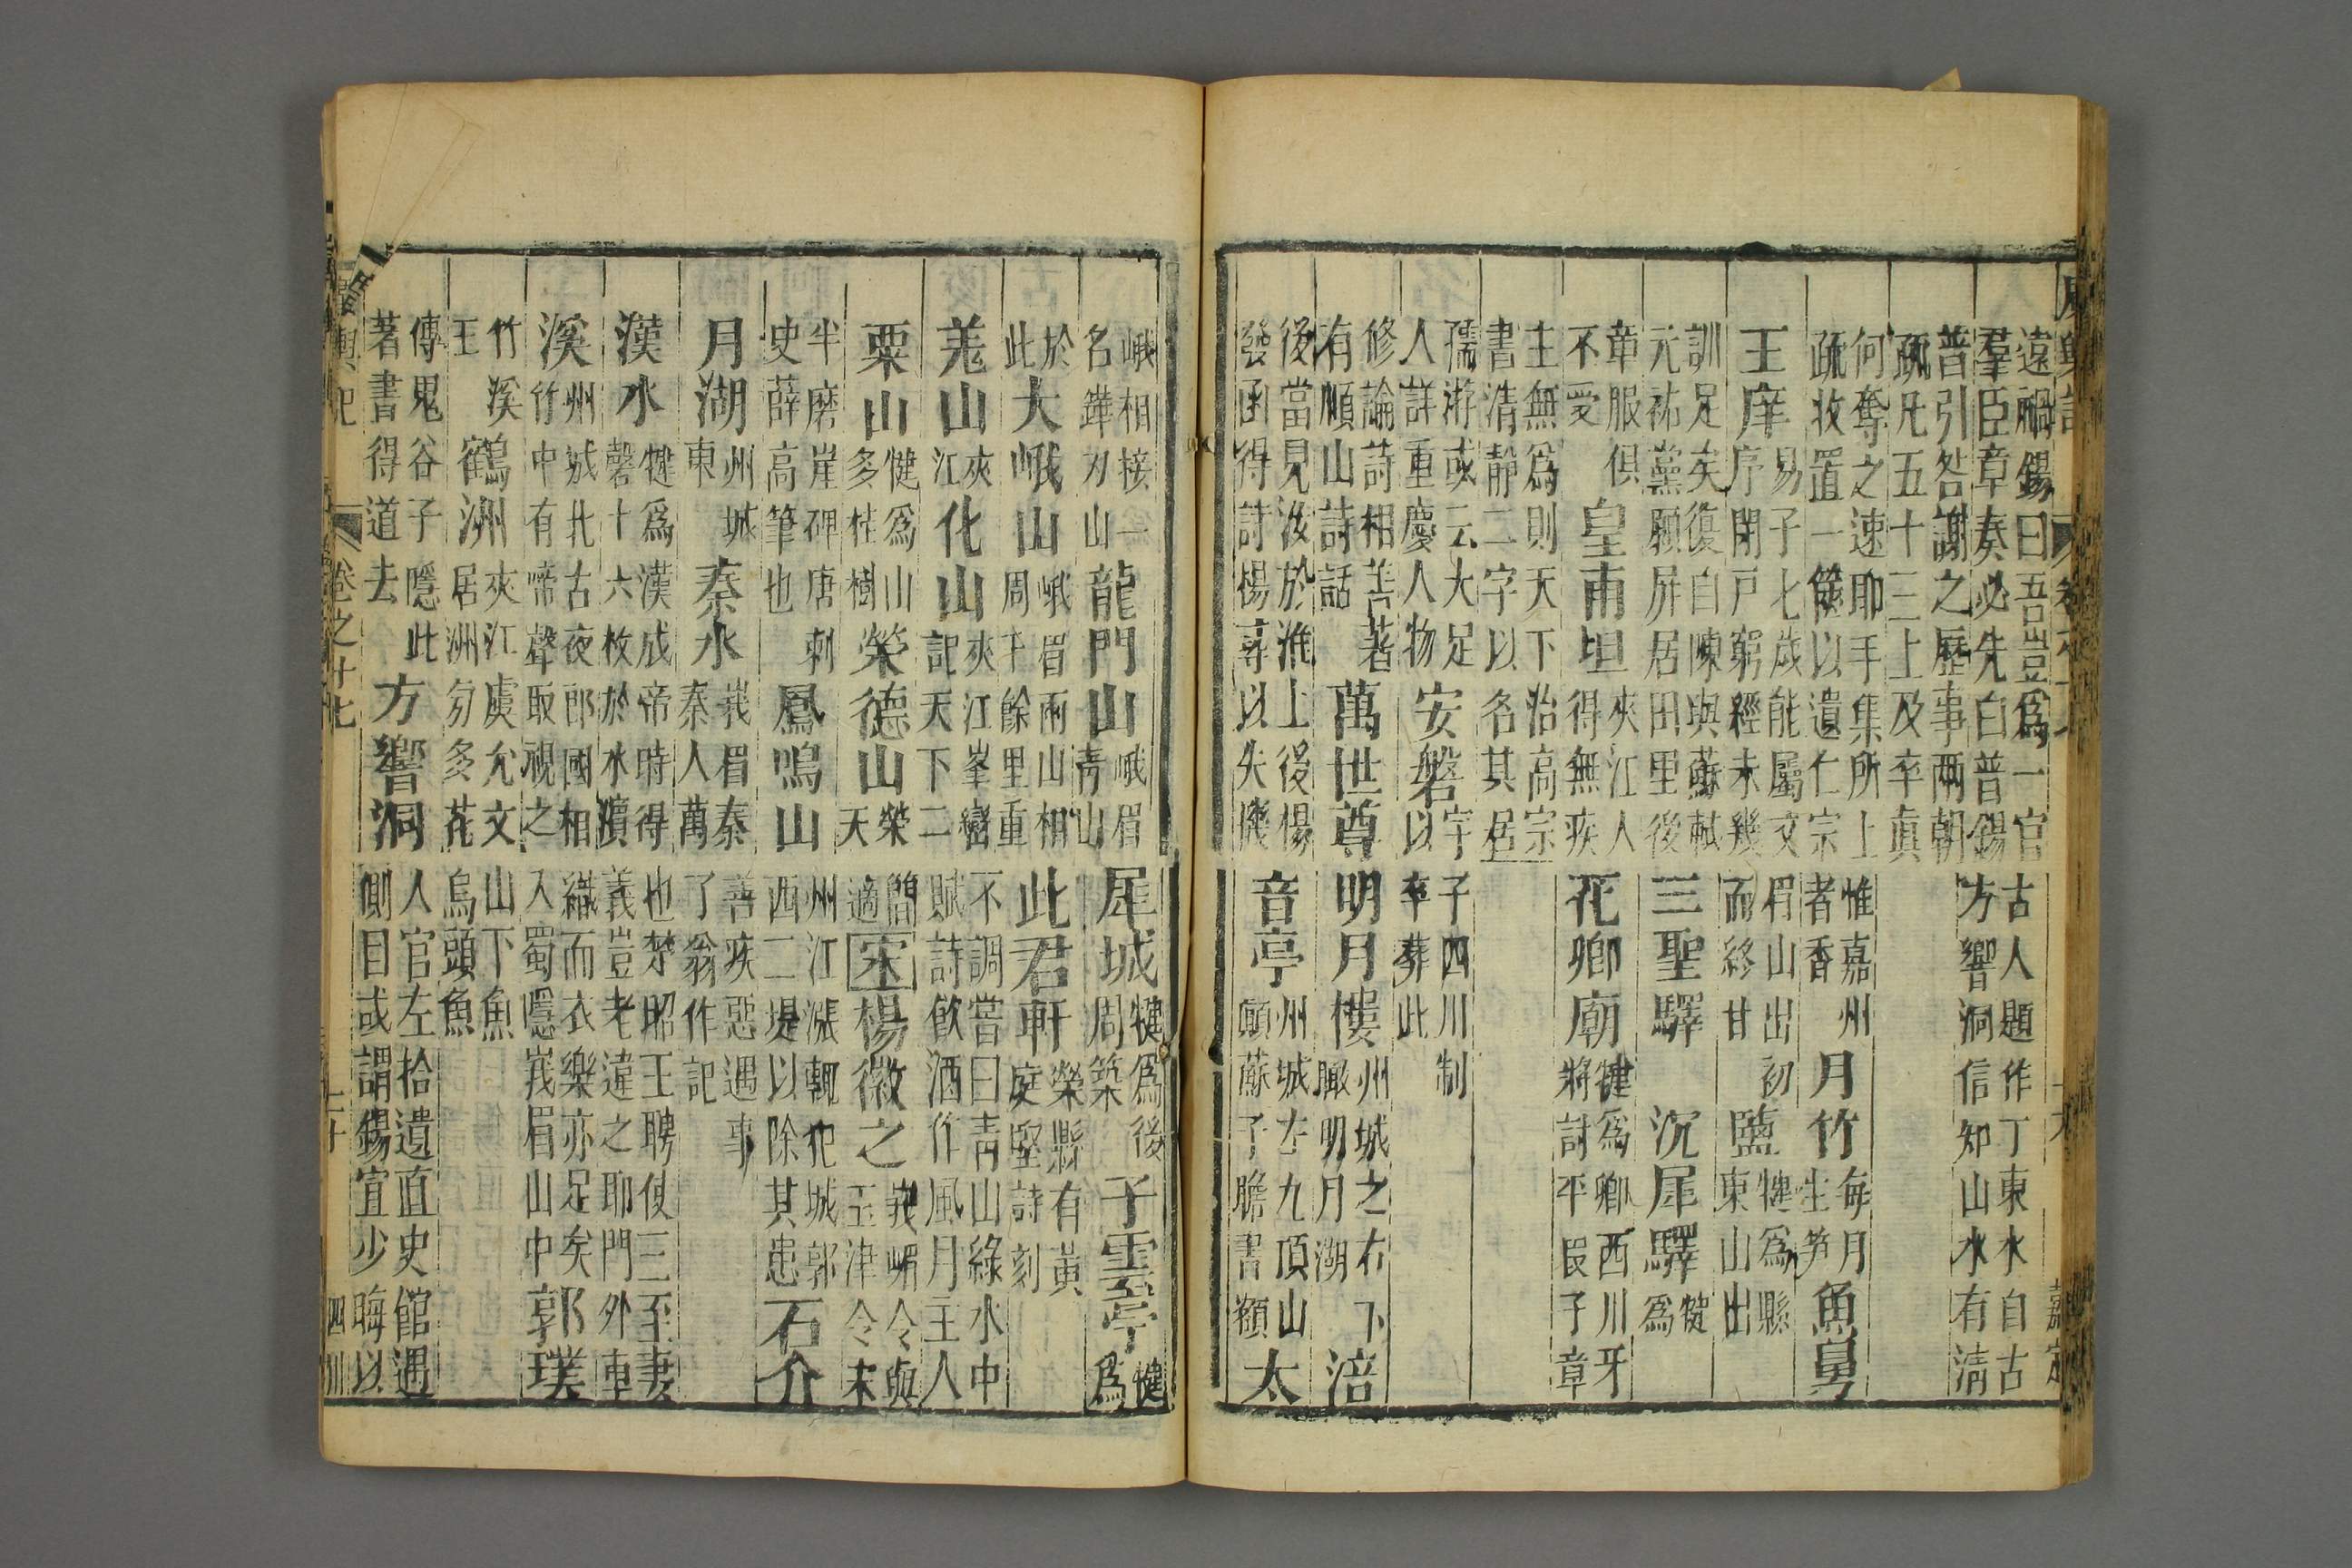 遠禍錫曰吾豈爲一官
羣臣章奏必先白普錫
普引咎謝之歷事兩朝
疏凡五十三上及卒真
何奪之速耶手集所上
疏牧置一篋以遺仁宗
王庠
易子七歲能屬文
序閉戶窮經未幾
訓足矣復自陳與蘇軾
元祐黨願屏居田里後
章服俱
不受
皇甫坦
夾江人
得無疾
主無爲則天下治高宗
書清靜二字以名其居
孺游或云大足
人詳重慶人物
安磐
字
以
修論詩相善著
有順山詩話
萬世尊
後當見汝於淮上後楊
發函得詩楊尋以失機
古人題作丁東水自古
方響洞信知山水有清
惟嘉州
者香
月竹
每月
生笋
魚舅
眉山出初
而終甘
鹽
犍爲縣
東山出
三聖驛
沉犀驛
犍
爲
花卿廟
犍爲卿西川牙
將討平叚子章
子四川制
卒葬此
明月樓
州城之右下
瞰明月湖
涪
音亭
州城左九頂山
顧蘇子瞻書額
太
峨相接一
名鏵刃山
龍門山
峨眉
靑山
於
此
大峨山
峨眉兩山相
周千餘里重
羗山
夾
江
化山
夾江峯巒
記天下二
粟山
犍爲山
多桂樹
榮德山
榮
天
半磨崖碑唐刺
史薛高筆也
鳳鳴山
月湖
州城
東
秦水
峩眉秦
秦人萬
漢水
犍爲漢成帝時得
磬十六枚於水濱
溪
州城北古夜郎國相
竹中有啼聲取視之
竹溪
王
鶴洲
夾江虞允文
居洲匆多花
傳鬼谷子隱此
著書得道去
方響洞
犀城
犍爲後
周築
子雲亭
犍
爲
此君軒
榮縣有黃
庭堅詩刻
不調嘗曰靑山綠水中
賦詩飮酒作風月主人
簡
適
宋
楊徽之
峩嵋令與
玉津令末
州江漲輒犯城郭
西二堤以除其患
石介
善疾惡遇事
了翁作記
也楚昭王聘使三至妻
義豈老違之耶門外車
織而衣樂亦足矣
入蜀隱峩眉山中
郭璞
山下魚
烏頭魚
人官左拾遺直史館遇
側目或謂錫宜少晦以
卷之十七
二十
四川